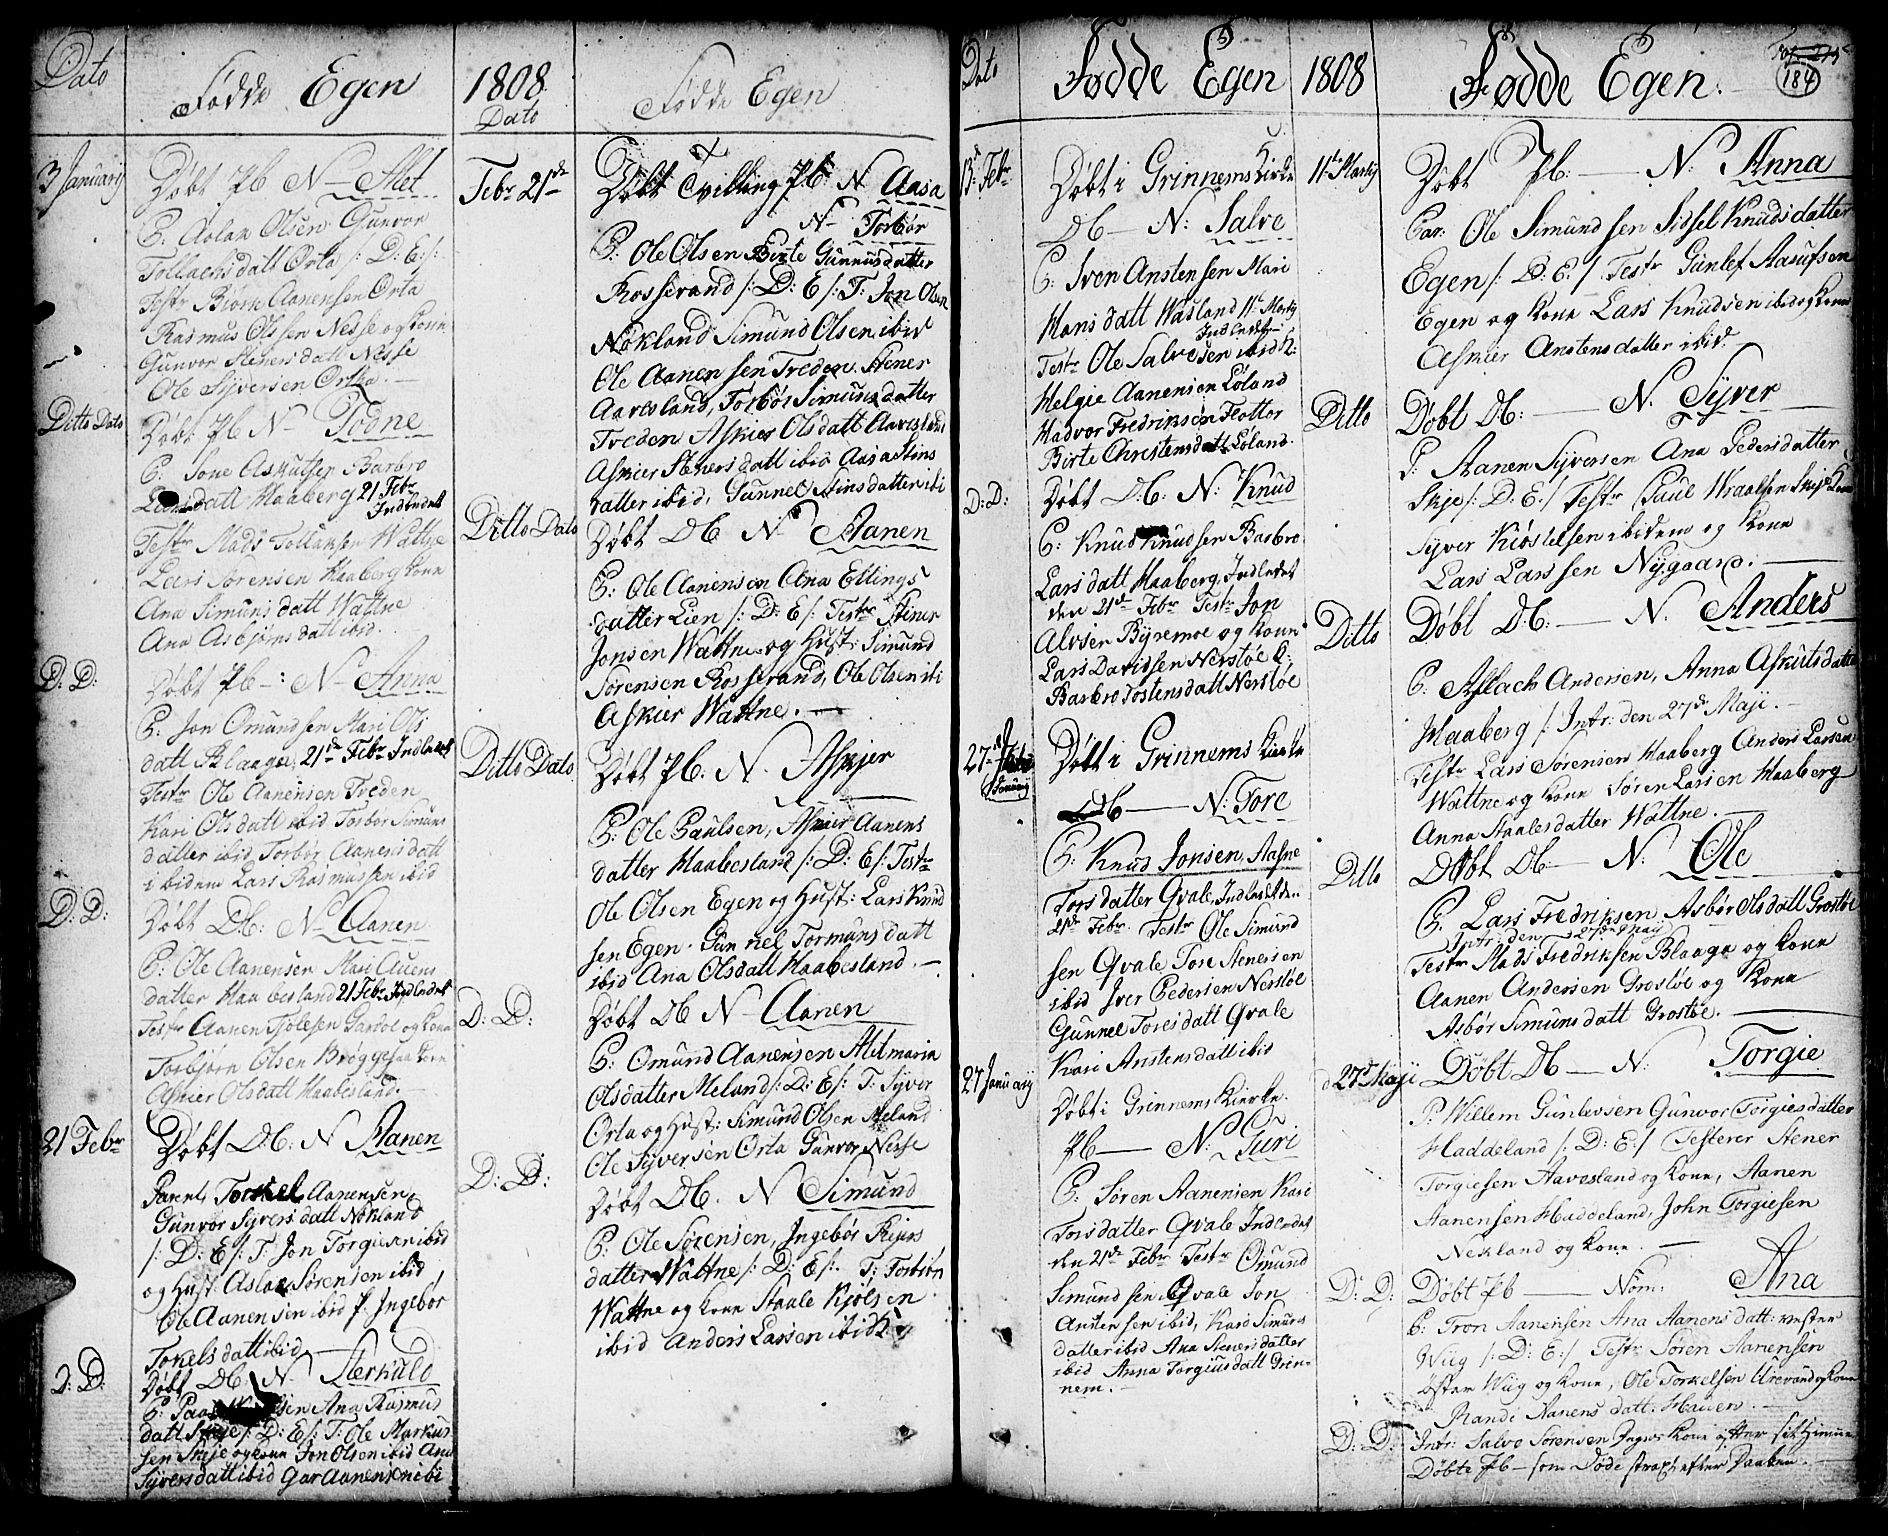 Dato
Fødde Egen
3 January
Døbt Pb N— Alet
P: Aslak Olsen Gunvor
Tollachsdatt Orta /: D: E:/:
Testr Biørn Aanensen Orta
Rasmus Olssen Nesse og Kone
Gunvor Stenersdatt Nesse
Ole Syversen Orta. —
Ditto Dato
Døbt Pb N— Todne
P: Tone Askutsen Barbro
datt Haaberg 21 Febr
Indledet
Testr Mads Tollaksen Wattne
Lars Sørensen Haaberg Kone
Ana Simunsdatt Wattne
Ana Asbjørnsdatt ibid.
D: D:
Døbt Pb —: N— Anna
P: Jon Omundsen Mari Ols
datt Blaage 21de Febr Indledet
Testr Ole Aanensen Treden
Kari Olsdatt ibid Torbør Simuns
datter ibid Torbør Aanensdatt
ibidem Lars Rasmussen ibid
D: D:
Døbt Db: N— Aanen
P: Ole Aanensen Mari Auens
datter Haabesland 21 Febr Indledet
Testr Aanen Kjølesen og Kone
Torbjørn Olsen Kone
Askier Olsdatt Haabesland —
21 Febr
Døbt Db: N Aanen
Parent Torkel Aanensen
Gunvor Syversdatt Nøkland
/: D: E/: T: Jon Torgiesen ibid
og Hust: Aslac Sørensen ibid
Ole Aanensen ibid P. Ingebor
Torkelsdatt ibid
D: D:
Døbt Db N. Terkald
P: Ana Rasmus
datt Skeje /: D: E/: T: Ole Markus
sen Skeje og Kone Jon Olsen ibid Ana
Syversdatt ibid Aanensen ibi
1808.
Dato
Fødde Egen
Febr 21de
Døbt Tvilling Pb N Aasa
N— Torbør
P: Ole Olsen Birte Gunnusdatter
Rosserand /: D: E/: T: Jon Olsen
Nøkland Simund Olsen ibid
Ole Aanensen Treden. Stener
Aavesland, Torbør Simunsdatter
Treden Askier Olsdatt Aavesland
Askier Stenersdatt ibid Aasa Stins
datter ibid, Gunnel Stinsdatter ibi
Ditto Dato
Døbt Db N— Aanen
P: Ole Aanensen Ana Ellings
datter Lien /: D: E/: Testr Stener
Jonsen Wattne og Hust: Simund
Sørensen Rosserand, Ole Olsen ibi
Askier Wattne. —
Ditto Dato
Døbt Pb. N. Askjer
P: Ole Paulsen, Askier Aanens
datter Haabesland /: D: E/: Testr
Ole Olsen Egen og Hust: Lars Knud
sen Egen. Gunnel Tormunsdatt
ibid Ana Olsdatt Haabesland. —
D: D:
Døbt Db N— Aanen
P: Omund Aanensen Aletmaria
Olsdatter Meland /: D: E/: T: Syver
Orta og Hust: Simund Olsen Meland
Ole Syversen Orta Gunvor Nesse
D: D:
Døbt Db. N Simund
P: Ole Sørensen, Ingebør Reiers
datter Wattne /: D: E/: T: Torbiøn
Wattne og Kone Staale Kjølsen
ibid Anders Larsen ibid K:
Dato
Fødde Egen
13de Febr
Døbt i Grinnems Kirke
Db— N: Salve
P: Iven Anstensen Mari
Hansdatt Wasland 11te Marty
Indledet
Testr Ole Salvesen ibid K:
Helgie Aanensen Løland
Hadvor Fredriksen Flottor
Birte Christensdatt Løland.
D: D:
Døbt Db: N: Knud
P: Knud Knudsen Barbro
Larsdatt Haaberg, Indledet
den 21de Febr Testr Jon
Alvsen Byremoe og Kone
Lars Davidsen Nerstøe K:
Barbro Tostensdatt Nerstøe
27de
January
Døbt i Grinnems Kirke
Db— N: Tore
P: Knud Jonsen, Aasne
Torsdatter Qvale, Indledet den
21de Febr. Testr Ole Simund
sen Qvale Tore Stenersen
ibid Iver Pedersen Nerstøe
Gunnel Toresdatt Qvale
Kari Anstensdatt ibid
27 January
Døbt i Grinnems Kirke.
Pb— N: Guri
P: Søren Aanensen Kari
Torsdatter Qvale Indledet
den 21de Febr Testr Omund
Simundsen Qvale Jon
Anstensen ibid, Kari Simuns
datter ibid Ana Stenersdatter
ibid Anna Torgiusdatt Grin-
nem. —
1808
Fødde Egen.
184
11te Marty
Døbt Pb: — N: Anna
Par: Ole Simundsen Sidsel Knudsdatter
Egen /: D: E:/ Testr Gunlef Aasufsen
Egen og Kone Lars Knudsen ibid og Kone
Askier Anstensdatter ibid. —
Ditto
Døbt Db: — N. Syver
P: Aanen Syversen Ana Pedersdatter
Skje /: D: E:/ Testr Paul Wraalsen Skje Kone
Syver Kiøstelsen ibidem og Kone
Lars Larssen Nygaard. —
Ditto
Døbt Db: — N. Anders
P: Aslach Andersen, Anna Askutsdatter
Haaberg /: Intr: den 27de Maji. —
Testr Lars Sørensen Haaberg Anders Larsen
Wattne og Kone Søren Larsen Haaberg
Anna Staalesdatter Wattne. —
Ditto
Døbt Db— N: Ole
P: Lars Fredriksen, Asbør Olsdatt Grostøe
Intr: den 27de Maji
Testr Mads Fredriksen Blaage og Kone
Aanen Andersen Grostøe og Kone
Asbør Simunsdatt Grostøe. —
d 27de Maji
Døbt Db — N: Torgie
P: Willem Gunlevsen Gunvor Torgiesdatter
Haddeland /: D: E:/ Testerer Stener
Torgiesen Aavesland og Kone, Aanen
Aanensen Haddeland, John Torgiesen
Nekland og Kone. —
D: D:
Døbt Pb — Nom: Ana
P: Tron Aanensen Ana Aanensdatt: vester
Wiig /: D: E:/ Testr Søren Aanensen
Øster Wiig og Kone, Ole Torkelsen Urevand og Kone
Randi Aanensdatt: Hauen. —
D: D:
Intr: Salve Sørensen Kone efter sit Hiemme
Døbte Pb— som Døde strax efter Daaben. —